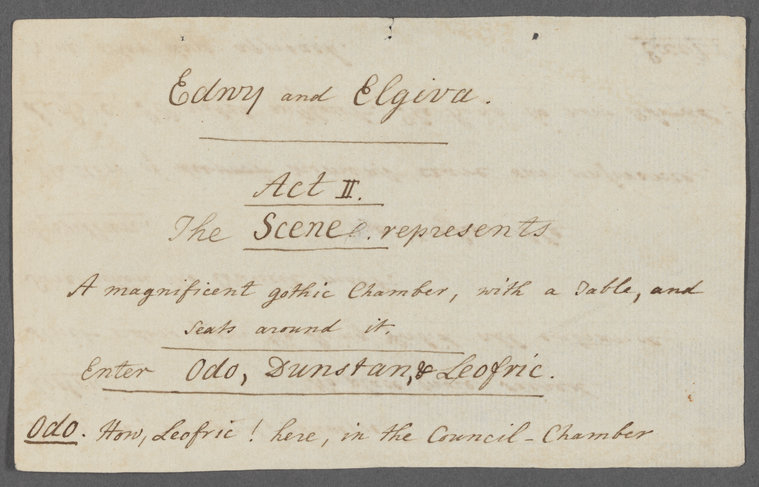 Edwy and Elgiva.
Act II.
The Scene. represents
A magnificent gothic Chamber, with a Table, and
seats around it.
Enter Odo, Dunstan, & Leofric.
Odo. How, Leofric! here, in the Council-Chamber